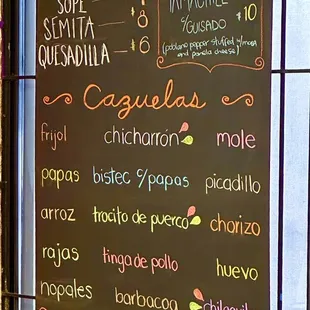 SOPE
SÉMITA 8
QUESADILLA 6
c/GUISADO $10
(poblano pepper stuffed w/meat
and panela cheese)
Cazuelas
frijol chicharrón mole
papas bistec c/papas picadillo
arroz trocito de puerco chorizo
rajas tinga de pollo huevo
nopales barbacoa